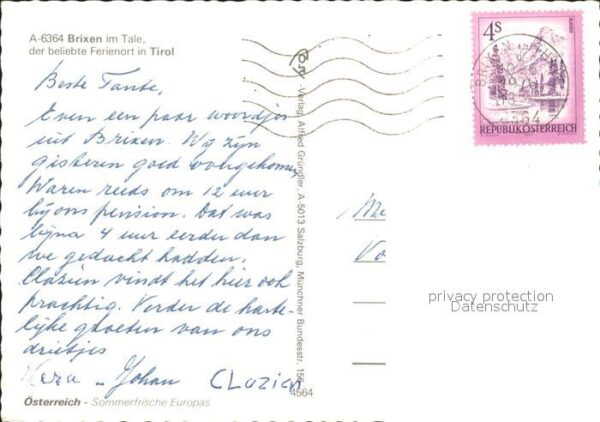 A-6364 Brixen im Tale,
der beliebte Ferienort in Tirol
Beste Tante,
Even een paar woordjes
uit Brixen. Wij zijn
gisteren goed overgekomen
Waren reeds om 12 uur
bij ons pension. Dat was
bijna 4 uur eerder dan
we gedacht hadden.
Clazien vindt het hier ook
prachtig. Verder de harte-
lijke groeten van ons
drietjes
Johan Clazien
Österreich - Sommerfrische Europas
Verlag Alfred Gründler, A-5013 Salzburg, Münchner Bundesstr.
4564
4S
REPUBLIK ÖSTERREICH
BRIXEN
6364
privacy protection
Datenschutz